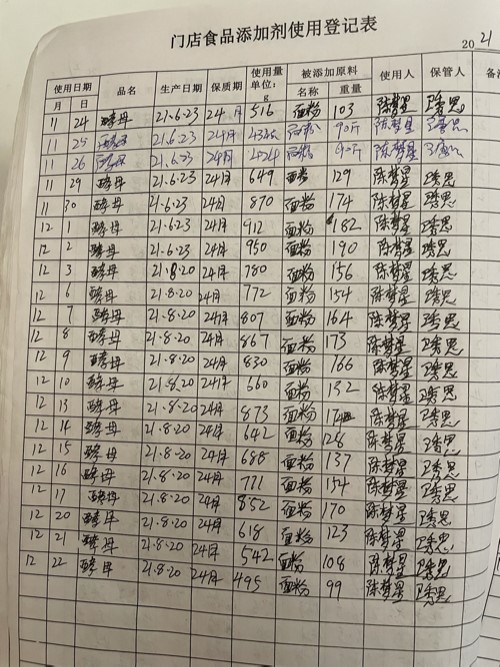 门店食品添加剂使用登记表
20 21
使用日期 品名 生产日期 保质期 使用量单位:g 被添加原料 使用人 保管人 备
月 日 名称 重量
11 24 酵母 21.6.23 24月 516 面粉 103 陈梦星 思
11 25 酵母 21.6.23 24月 面粉 陈梦星
11 26 酵母 21.6.23 24月 面粉 陈梦星
11 29 酵母 21.6.23 24月 649 面粉 129 陈梦星 思
11 30 酵母 21.6.23 24月 870 面粉 174 陈梦星 思
12 1 酵母 21.6.23 24月 912 面粉 182 陈梦星 思
12 2 酵母 21.6.23 24月 950 面粉 190 陈梦星 思
12 3 酵母 21.8.20 24月 780 面粉 156 陈梦星 思
12 6 酵母 21.8.20 24月 772 面粉 154 陈梦星 思
12 7 酵母 21.8.20 24月 807 面粉 164 陈梦星 思
12 8 酵母 21.8.20 24月 867 面粉 173 陈梦星 思
12 9 酵母 21.8.20 24月 830 面粉 166 陈梦星 思
12 10 酵母 21.8.20 24月 660 面粉 132 陈梦星 思
12 13 酵母 21.8.20 24月 873 面粉 陈梦星 思
12 14 酵母 21.8.20 24月 642 面粉 128 陈梦星 思
12 15 酵母 21.8.20 24月 688 面粉 137 陈梦星 思
12 16 酵母 21.8.20 24月 771 面粉 154 陈梦星 思
12 17 酵母 21.8.20 24月 852 面粉 170 陈梦星 思
12 20 酵母 21.8.20 24月 618 面粉 123 陈梦星 思
12 21 酵母 21.8.20 24月 542 面粉 108 陈梦星 思
12 22 酵母 21.8.20 24月 495 面粉 99 陈梦星 思